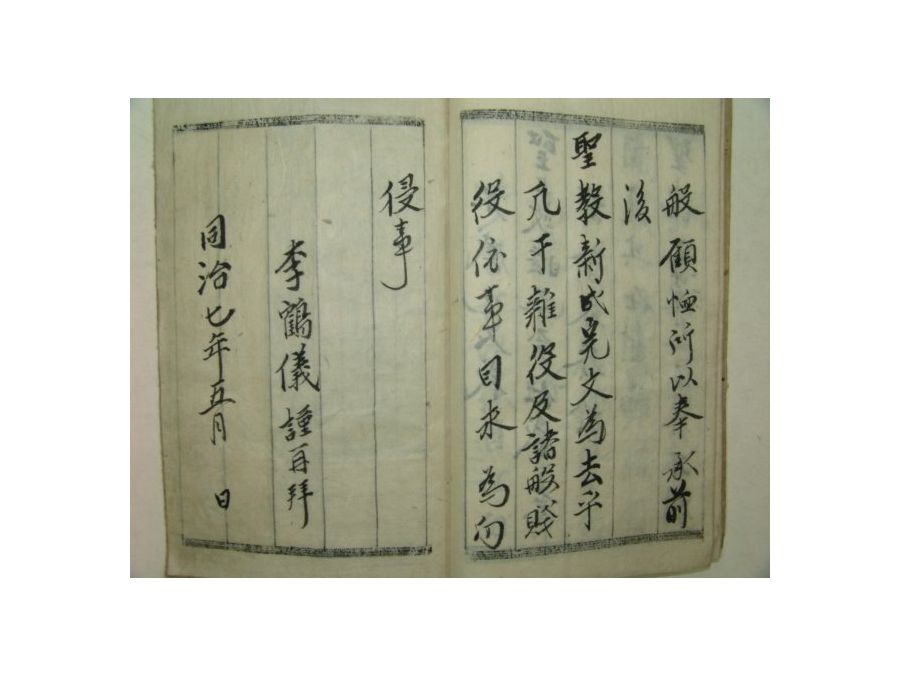 般顧恤所以奉承前
後
聖教新成完文為去乎
凡干雜役及諸般賤
役依事目未為勿
侵事
李鶴儀謹再拜
同治七年五月 日